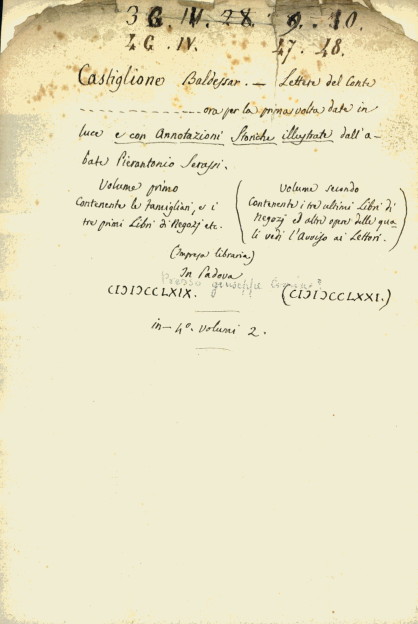 3 G. IV. 28. 9. 10.
4 G. IV. 47. 48.
Castiglione Baldessar. — Lettere del Conte
- - - - - - - - - - - - - - ora per la prima volta date in
luce e con Annotazioni Storiche illustrate dall'a-
bate Pierantonio Serassi.
Volume primo
Contenente le famigliari, e i
tre primi Libri di Negozj etc.
Volume secondo
Contenente i tre ultimi Libri di
Negozj ed altre opere delle qua-
li vedi l'Avviso ai Lettori.
(Impresa libraria)
In Padova
Presso Giuseppe Comino?
CIƆIƆCCLXIX.
(CIƆIƆCCLXXI.)
in-4º. volumi 2.